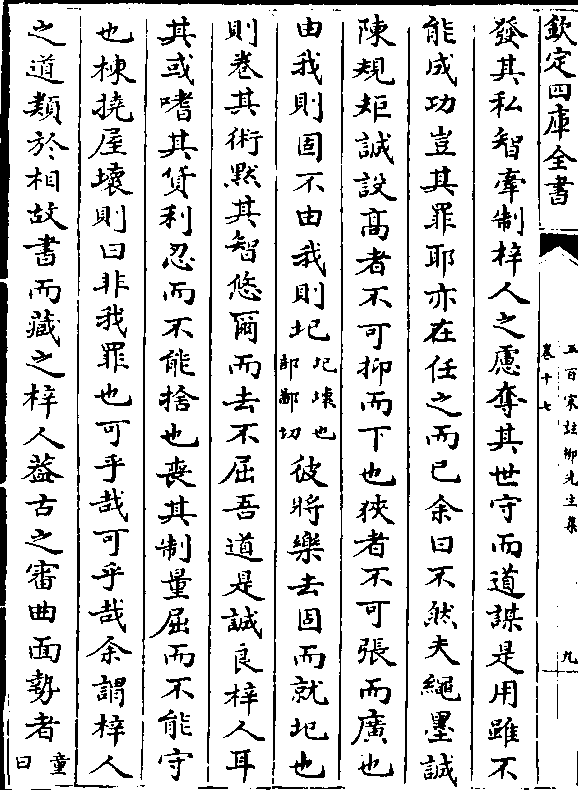 欽定四庫全書
五百家註柳先生集
卷十七
九
發其私智牽制梓人之慮奪其世守而道謀是用雖不
能成功豈其罪耶亦在任之而已余曰不然夫繩墨誠
陳規矩誠設高者不可抑而下也狹者不可張而廣也
由我則固不由我則圮圮壊也部鄙切彼將樂去固而就圮也
則卷其術黙其智悠爾而去不屈吾道是誠良梓人耳
其或嗜其貨利忍而不能捨也喪其制量屈而不能守
也棟撓屋壊則曰非我罪也可乎哉可乎哉余謂梓人
之道類於相故書而藏之梓人葢古之審曲面勢者童曰